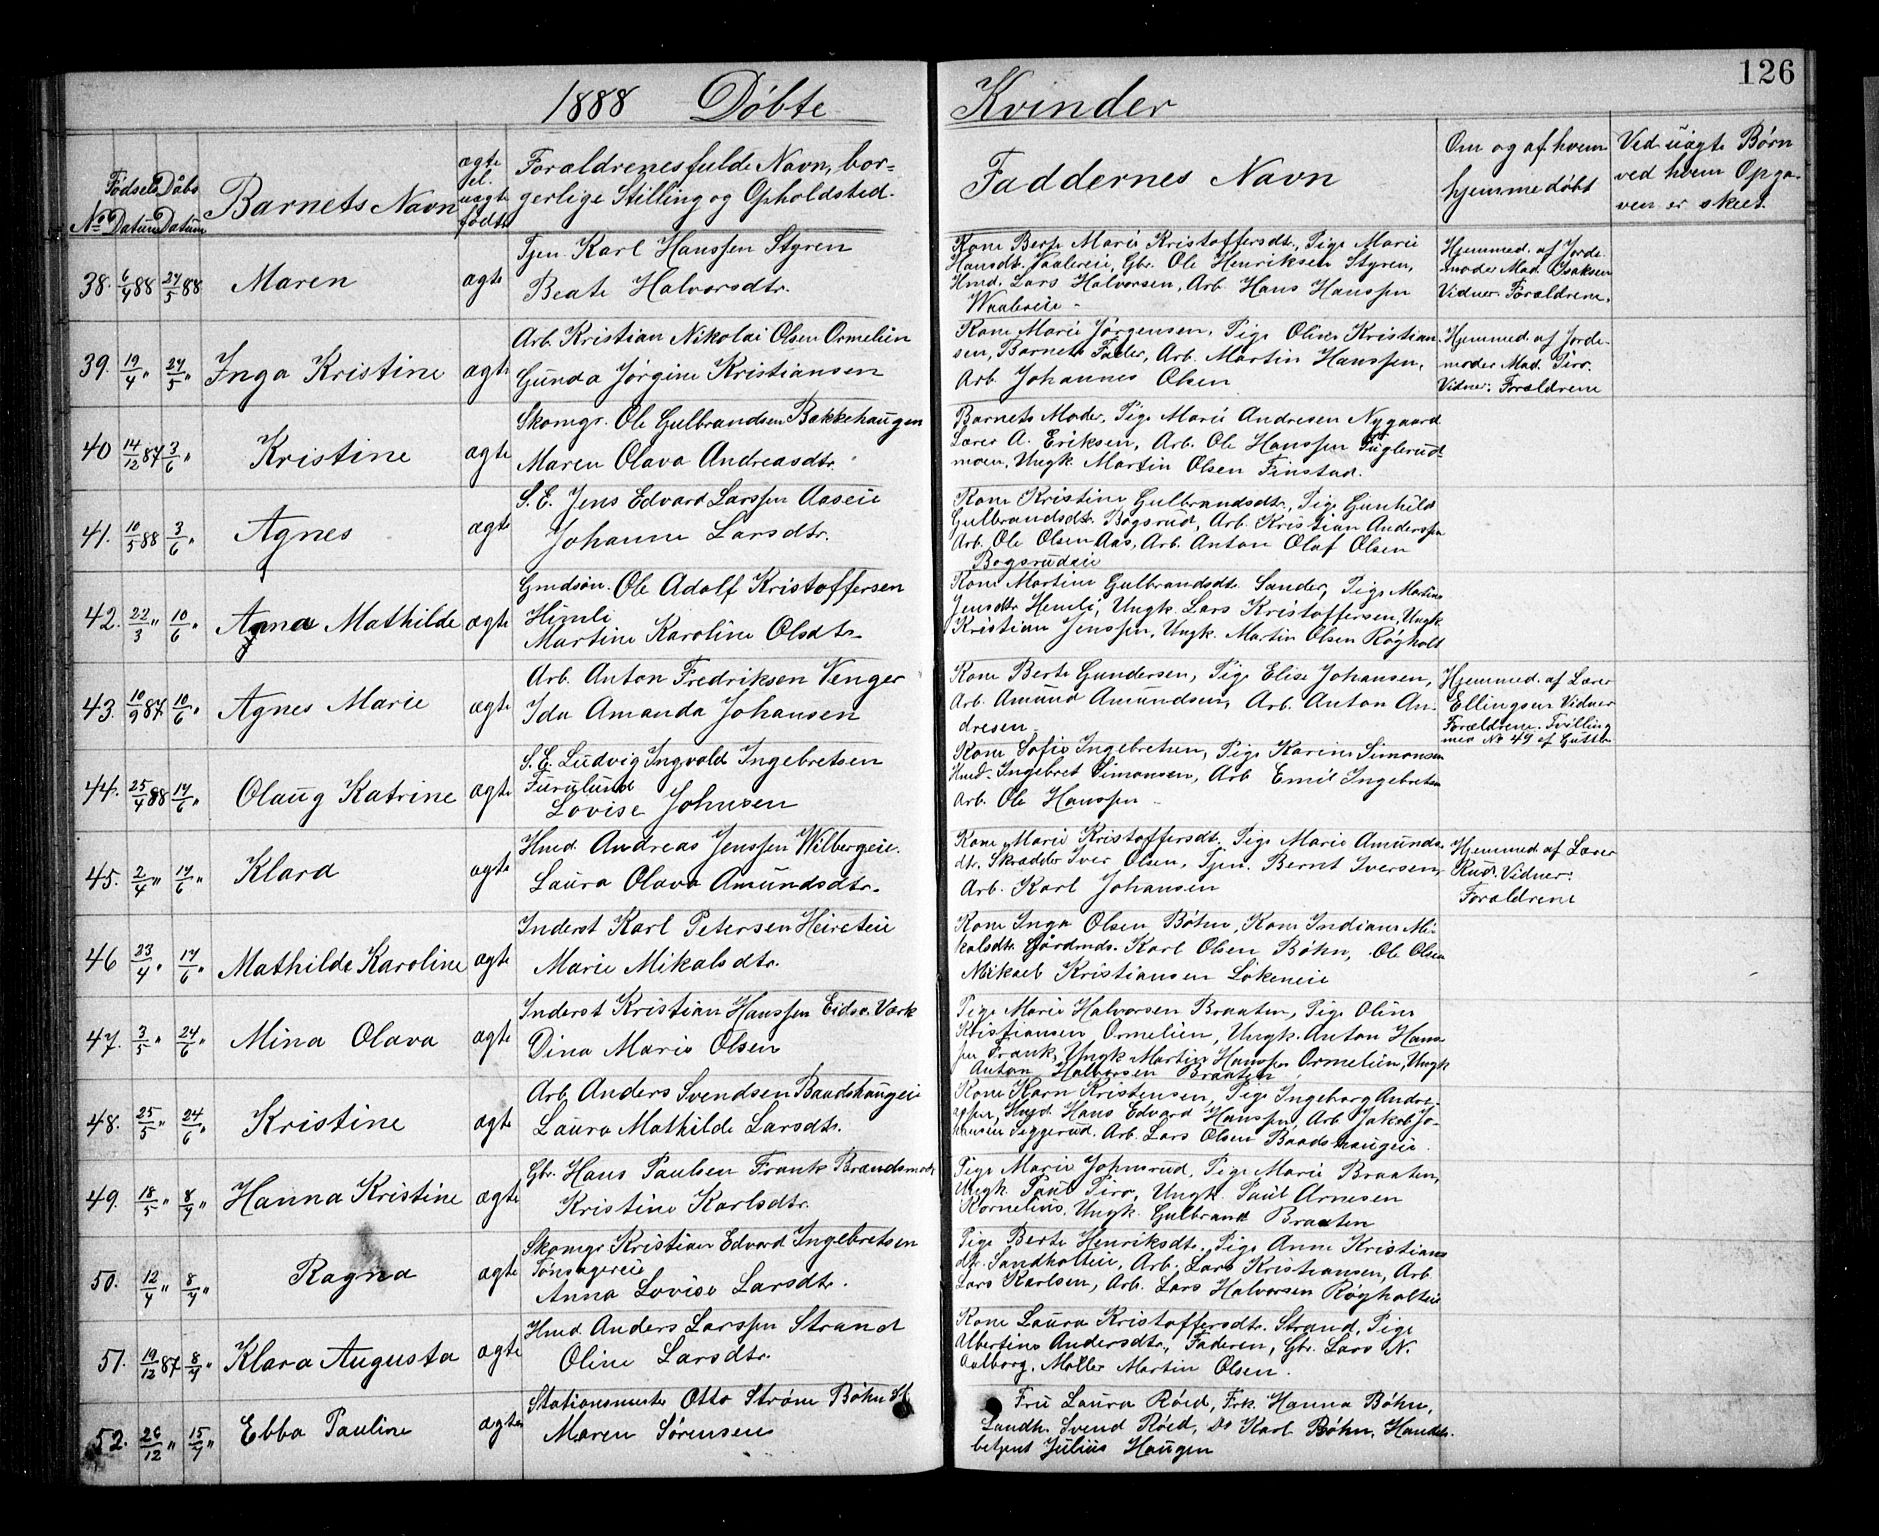 126
1888 Døbte Kvinder
No. Fødsels Datum Døbs Datum Barnets Navn ægte el. uægte født Forældrenes fulde Navn, bor-
gerlige Stilling og Opholdsted. Faddernes Navn Om og af hvem
hjemmedøbt Ved uägte Børn
ved hvem Opga-
ven er skeet.
38. 6/4 88 27/5 88 Maren ægte
Tjen. Karl Hanssen Styren
Beate Halvorsdtr.
Kone Berte Marie Kristoffersdt., Pige Marie
Hansdt. Vaalereie, Gbr. Ole Henriksen Styren,
Hmd. Lars Halvorsen, Arb. Hans Hanssen
Waalereie -
Hjemmed. af Jorde-
moder Mad. Isaksen
Vidner. Forældrene.
39. 19/4 " 27/5 " Inga Kristine ægte
Arb. Kristian Nikolai Olsen Ormelien
Gunda Jørgine Kristiansen
Kone Marie Jørgensen, Pige Oline Kristian-
sen, Barnets Fader, Arb. Martin Hanssen,
Arb. Johannes Olsen
Hjemmed. af Jorde-
moder Mad. Piro.
Vidner: Forældrene
40 14/12 87 3/6 " Kristine ægte
Skomgr. Ole Gulbrandsen Bakkehaugen
Maren Olava Andreasdtr.
Barnets Moder, Pige Marie Andresen Nygaard
Lærer A. Eriksen, Arb. Ole Hanssen Fuglerud-
moen, Ungk. Martin Olsen Finstad.
41. 10/5 88 3/6 " Agnes ægte
S. E. Jens Edvard Larssen Aaseie
Johanne Larsdtr.
Kone Kristine Gulbrandsdt., Pige Gunhild
Gulbrandsdt. Bøgsrud, Arb. Kristian Anderssen
Arb. Ole Olsen Aas, Arb. Anton Olaf Olsen
Bogsrudeie
42. 22/3 " 10/6 " Agna Mathilde ægte
Gmdsøn. Ole Adolf Kristoffersen
Himli
Martine Karoline Olsdtr.
Kone Martine Gulbrandsdt. Sander, Pige Martine
Jensdtr. Hemli, Ungk. Lars Kristoffersen, Ungk.
Kristian Jenssen, Ungk. Martin Olsen Røgholt
43. 10/9 87 10/6 " Agnes Marie ægte
Arb. Anton Fredriksen Venger
Ida Amanda Johansen
Kone Berte Gundersen, Pige Elise Johansen,
Arb. Amund Amundsen, Arb. Anton An-
dresen
Hjemmed. af Lærer
Ellingsen Vidner
Forældrene. Tvilling
med No 49 af Guttb.
44. 25/4 88 17/6 " Olaug Katrine ægte
S. E. Ludvig Ingvald Ingebretsen
Furulund
Lovise Johnsen
Kone Sofie Ingebretsen, Pige Karine Simonsen
Hmd. Ingebret Simonsen, Arb. Emil Ingebretsen
Arb. Ole Hanssen -
45. 2/4 " 17/6 " Klara ægte
Hmd. Andreas Jenssen Wilbergeie.
Laura Olava Amundsdtr.
Kone Marie Kristoffersdt., Pige Marie Amunds-
dt. Skrædder Iver Olsen, Tjen. Bernt Iversen,
Arb. Karl Johansen
Hjemmed. af Lærer
Rud. Vidner:
Forældrene
46 23/4 " 17/6 " Mathilde Karoline ægte
Inderst Karl Petersen Heireteie
Marie Mikalsdtr.
Kone Inga Olsen Bøhn, Kone Indiane Mi-
kalsdtr. Gårdmds. Karl Olsen Bøhn, Ole Olsen
Mikael Kristiansen Løkeneie
47. 3/5 " 24/6 " Mina Olava ægte
Inderst Kristian Hanssen Eidsv. Værk
Dina Marie Olsen
Pige Marie Halvorsen Braaten, Pige Oline
Kristiansen Ormelien, Ungk. Anton Hans-
sen Frank, Ungk. Martin Hanssen Ormelien, Ungk
Anton Halvorsen Braaten
48. 25/5 " 24/6 " Kristine ægte
Arb. Anders Svendsen Baadshaugeie
Laura Mathilde Larsdtr.
Kone Karn Kristensen, Pige Ingeborg Andre-
assen, Hmd. Hans Edvard Hanssen, Arb Jakob Jo-
hansen Seggerud. Arb. Lars Olsen Baadshaugeie.
49. 18/5 " 8/7 " Hanna Kristine ægte
Gbr. Hans Paulsen Frank Brændsmo
Kristine Karlsdtr.
Pige Marie Johnsrud, Pige Marie Braaten,
Ungk. Paul Piro, Ungk. Paul Arnesen
Kornelius, Ungk. Gulbrand Braaten
50. 12/4 " 8/7 " Ragna ægte
Skomgr Kristian Edvard Ingebretsen
Tønsagereie
Anna Lovise Larsdtr.
Pige Berte Henriksdt., Pige Anne Kristians
dtr. Sandholteie, Arb. Lars Kristiansen, Arb.
Lars Karlsen, Arb. Lars Halvorsen Røgholteie
51. 19/12 87 8/7 " Klara Augusta ægte
Hmd. Anders Larssen Strand
Oline Larsdtr.
Kone Laura Kristoffersdtr. Strand, Pige
Albertine Andersdtr., Faderen, Gbr. Lars N.
Aalborg, Møller Martin Olsen.
52. 26/12 " 15/7 " Ebba Pauline ægte
Stationsmester Otto Strøm Bøhn St.
Maren Sørensen
Fru Laura Røed, Frk. Hanna Bøhn,
Landh. Svend Røed, Do Karl Bøhn, Handels-
betjent Julius Haugen